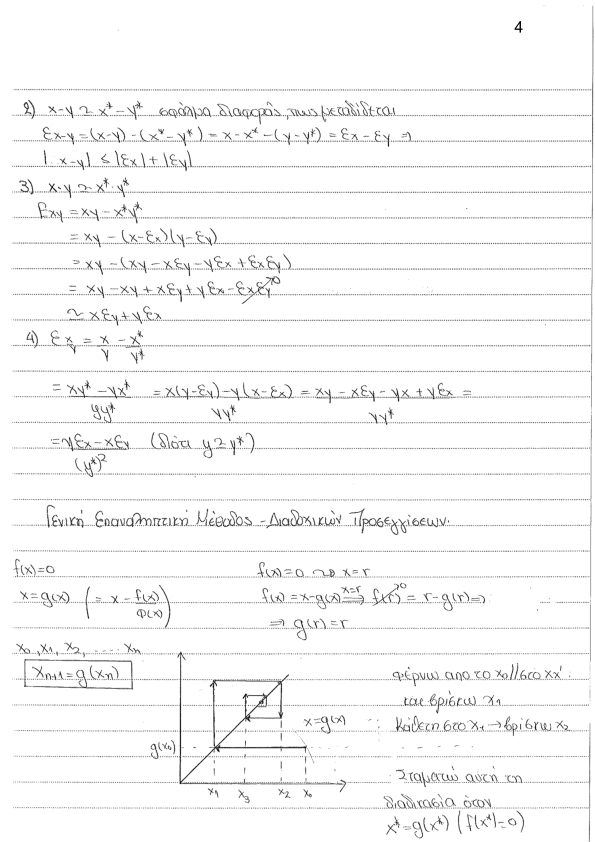 4
2) x-y ≃ x* - y* σφάλμα διαφοράς, πως μεταδίδεται
εx-y = (x-y) - (x* - y*) = x - x* - (y - y*) = εx - εy ⇒
| x-y| ≤ |εx| + |εy|
3) x·y ≃ x*·y*
εxy = xy - x*y*
= xy - (x-εx)(y-εy)
= xy - (xy - xεy - yεx + εxεy)
= xy - xy + xεy + yεx - εxεy → 0
≃ xεy + yεx
4) ε x/y = x/y - x*/y*
= (xy* - yx*)/(yy*) = (x(y-εy) - y(x-εx))/(yy*) = (xy - xεy - yx + yεx)/(yy*) =
= (yεx - xεy)/(y*)² (διότι y ≃ y*)
Γενική Επαναληπτική Μέθοδος - Διαδοχικών Προσεγγίσεων.
f(x)=0
x=g(x) (= x - f(x)/Φ(x))
f(x)=0 ⇝ x=r
f(x) = x-g(x) x=r ⇒ f(r) → 0 = r-g(r) ⇒
⇒ g(r)=r
x₀, x₁, x₂, ..... xn
xn+1 = g(xn)
x=g(x)
g(x₀)
x₁ x₃ x₂ x₀
φέρνω απο το x₀ // στο xx'
και βρίσκω x₁
Κάθετη στο x₁ → βρίσκω x₂
Σταματώ αυτή τη
διαδικασία όταν
x* = g(x*) (f(x*)=0)